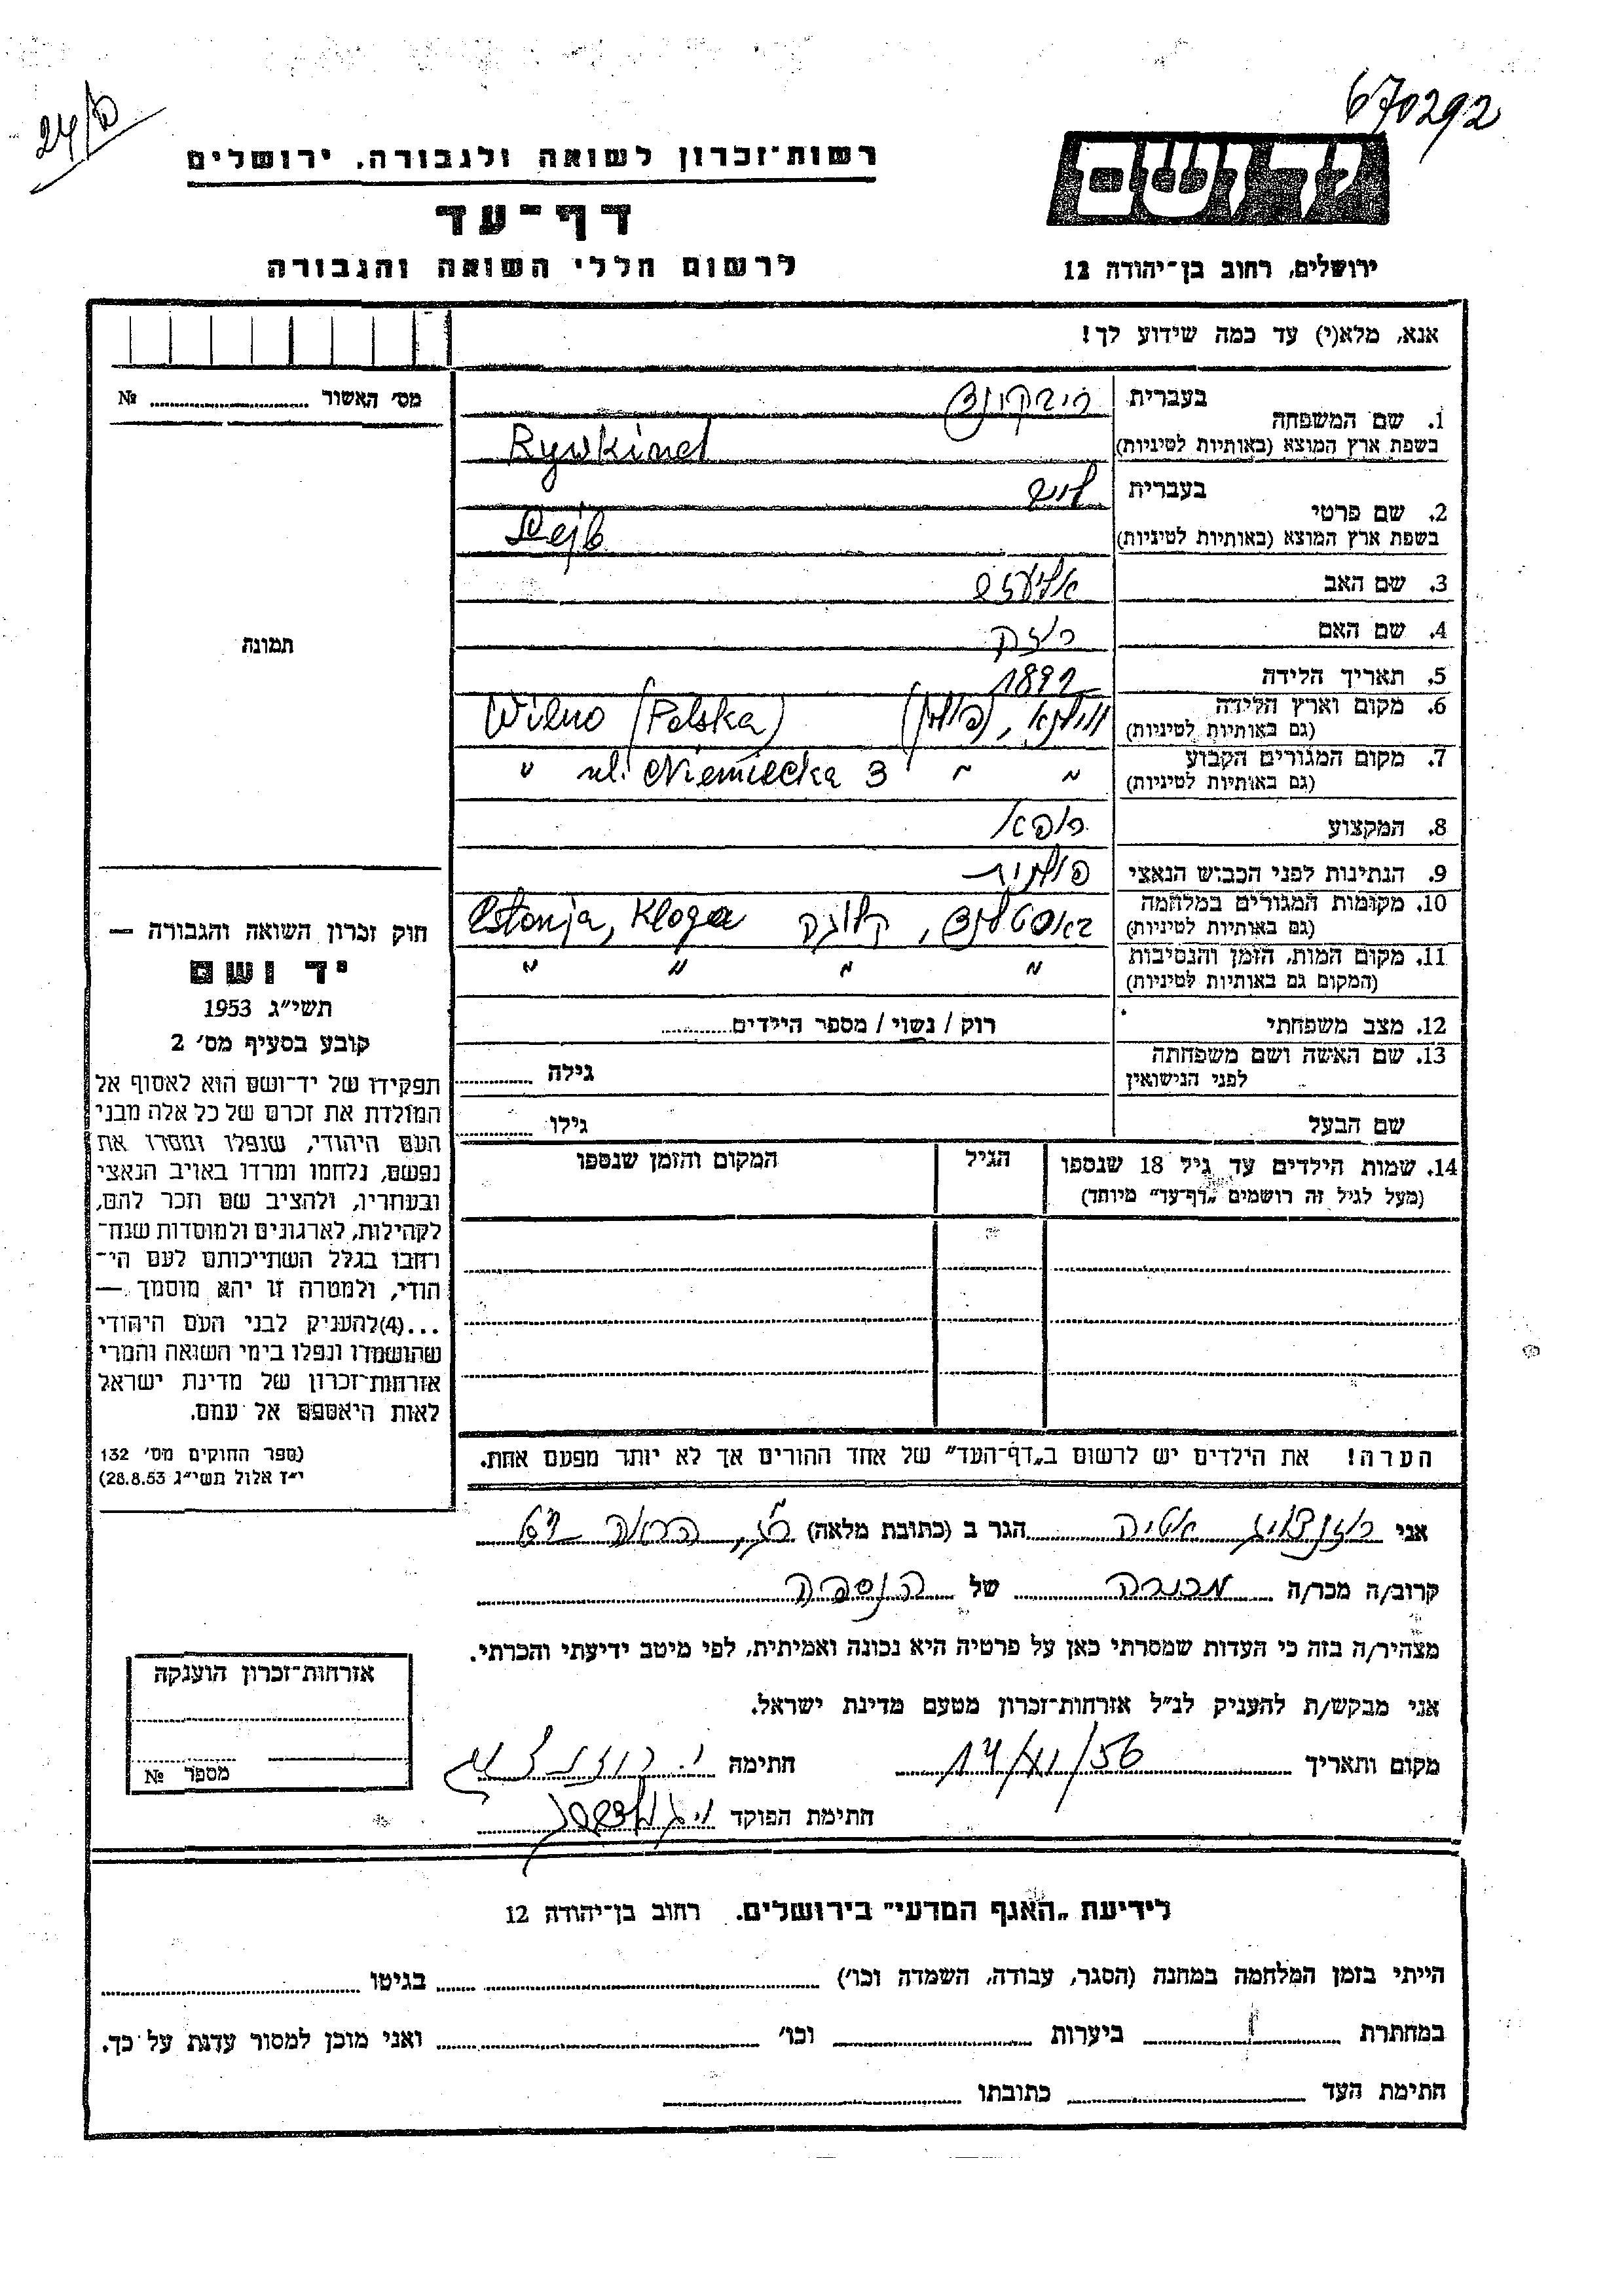 670292
רשות־זכרון לשואה ולגבורה, ירושלים
יד ושם
דף־עד
לרשום חללי השואה והגבורה
ירושלים, רחוב בן־יהודה 12
אנא, מלא(י) עד כמה שידוע לך!
מס׳ האשור № 
1. שם המשפחה בעברית ריבקינד
בשפת ארץ המוצא (באותיות לטיניות) Rywkind
2. שם פרטי בעברית לייב
בשפת ארץ המוצא (באותיות לטיניות) Lejb
3. שם האב אליעזר
4. שם האם
5. תאריך הלידה 1892
6. מקום וארץ הלידה (גם באותיות לטיניות) ווילנא, (פולין) Wilno (Polska)
7. מקום המגורים הקבוע (גם באותיות לטיניות) " " ul. Niemiecka 3 "
8. המקצוע רופא
9. הנתינות לפני הכבוש הנאצי פולנית
10. מקומות המגורים במלחמה (גם באותיות לטיניות) קלוגה Estonja, Kloga
11. מקום המות, הזמן והנסיבות (המקום גם באותיות לטיניות) " " " "
12. מצב משפחתי רוק / נשוי / מספר הילדים
13. שם האשה ושם משפחתה לפני הנישואין גילה
שם הבעל גילו
14. שמות הילדים עד גיל 18 שנספו (מעל לגיל זה רושמים „דף־עד” מיוחד) הגיל המקום והזמן שנספו
הערה! את הילדים יש לרשום ב„דף־העד” של אחד ההורים אך לא יותר מפעם אחת.
תמונה
חוק זכרון השואה והגבורה —
יד ושם
תשי״ג 1953
קובע בסעיף מס׳ 2
תפקידו של יד־ושם הוא לאסוף אל
המולדת את זכרם של כל אלה מבני
העם היהודי, שנפלו ומסרו את
נפשם, נלחמו ומרדו באויב הנאצי
ובעוזריו, ולהציב שם וזכר להם,
לקהילות, לארגונים ולמוסדות שנח־
רבו בגלל השתייכותם לעם הי־
הודי, ולמטרה זו יהא מוסמך —
...(4)להעניק לבני העם היהודי
שהושמדו ונפלו בימי השואה והמרי
אזרחות־זכרון של מדינת ישראל
לאות היאספם אל עמם.
(ספר החוקים מס׳ 132
י״ז אלול תשי״ג 28.8.53)
אני הגר ב (כתובת מלאה)
קרוב/ה מכר/ה מכרה של הנספה
מצהיר/ה בזה כי העדות שמסרתי כאן על פרטיה היא נכונה ואמיתית, לפי מיטב ידיעתי והכרתי.
אני מבקש/ת להעניק לנ״ל אזרחות־זכרון מטעם מדינת ישראל.
מקום ותאריך 14/XI/56 חתימה
חתימת הפוקד
אזרחות־זכרון הוענקה
מספר №
לידיעת „האגף המדעי” בירושלים. רחוב בן־יהודה 12
הייתי בזמן המלחמה במחנה (הסגר, עבודה, השמדה וכו׳) בגיטו
במחתרת ביערות וכו׳ ואני מוכן למסור עדות על כך.
חתימת העד כתובתו